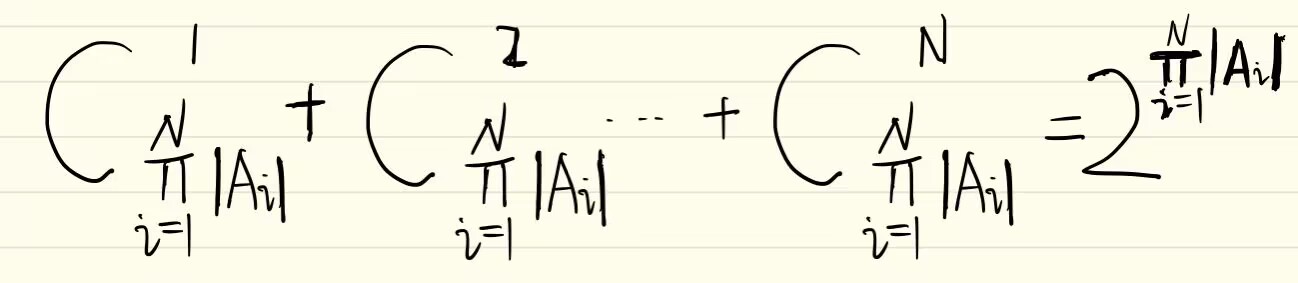 $C_{\prod_{i=1}^{N}|A_i|}^{1} + C_{\prod_{i=1}^{N}|A_i|}^{2} \cdots + C_{\prod_{i=1}^{N}|A_i|}^{N} = 2^{\prod_{i=1}^{N}|A_i|}$